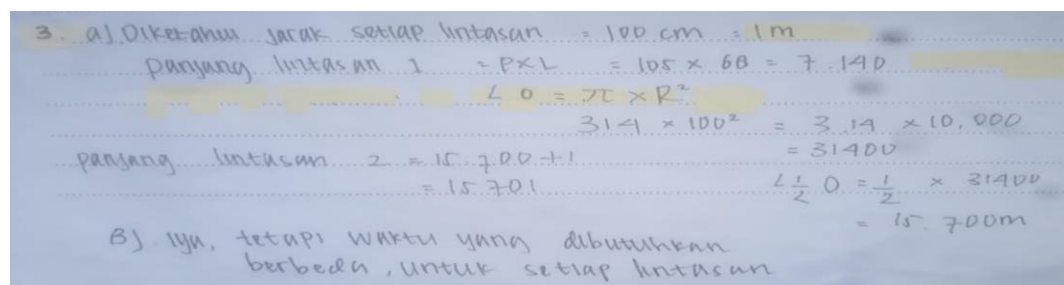 3. a) Diketahui jarak setiap lintasan = 100 cm = 1 m
panjang lintasan 1 = P×L = 105 × 68 = 7.140
L O = π × R²
314 × 100² = 3.14 × 10,000
= 31400
panjang lintasan 2 = 15.700 + 1
= 15.701
L ½ O = ½ × 31400
= 15.700m
B) iya, tetapi waktu yang dibutuhkan
berbeda, untuk setiap lintasan